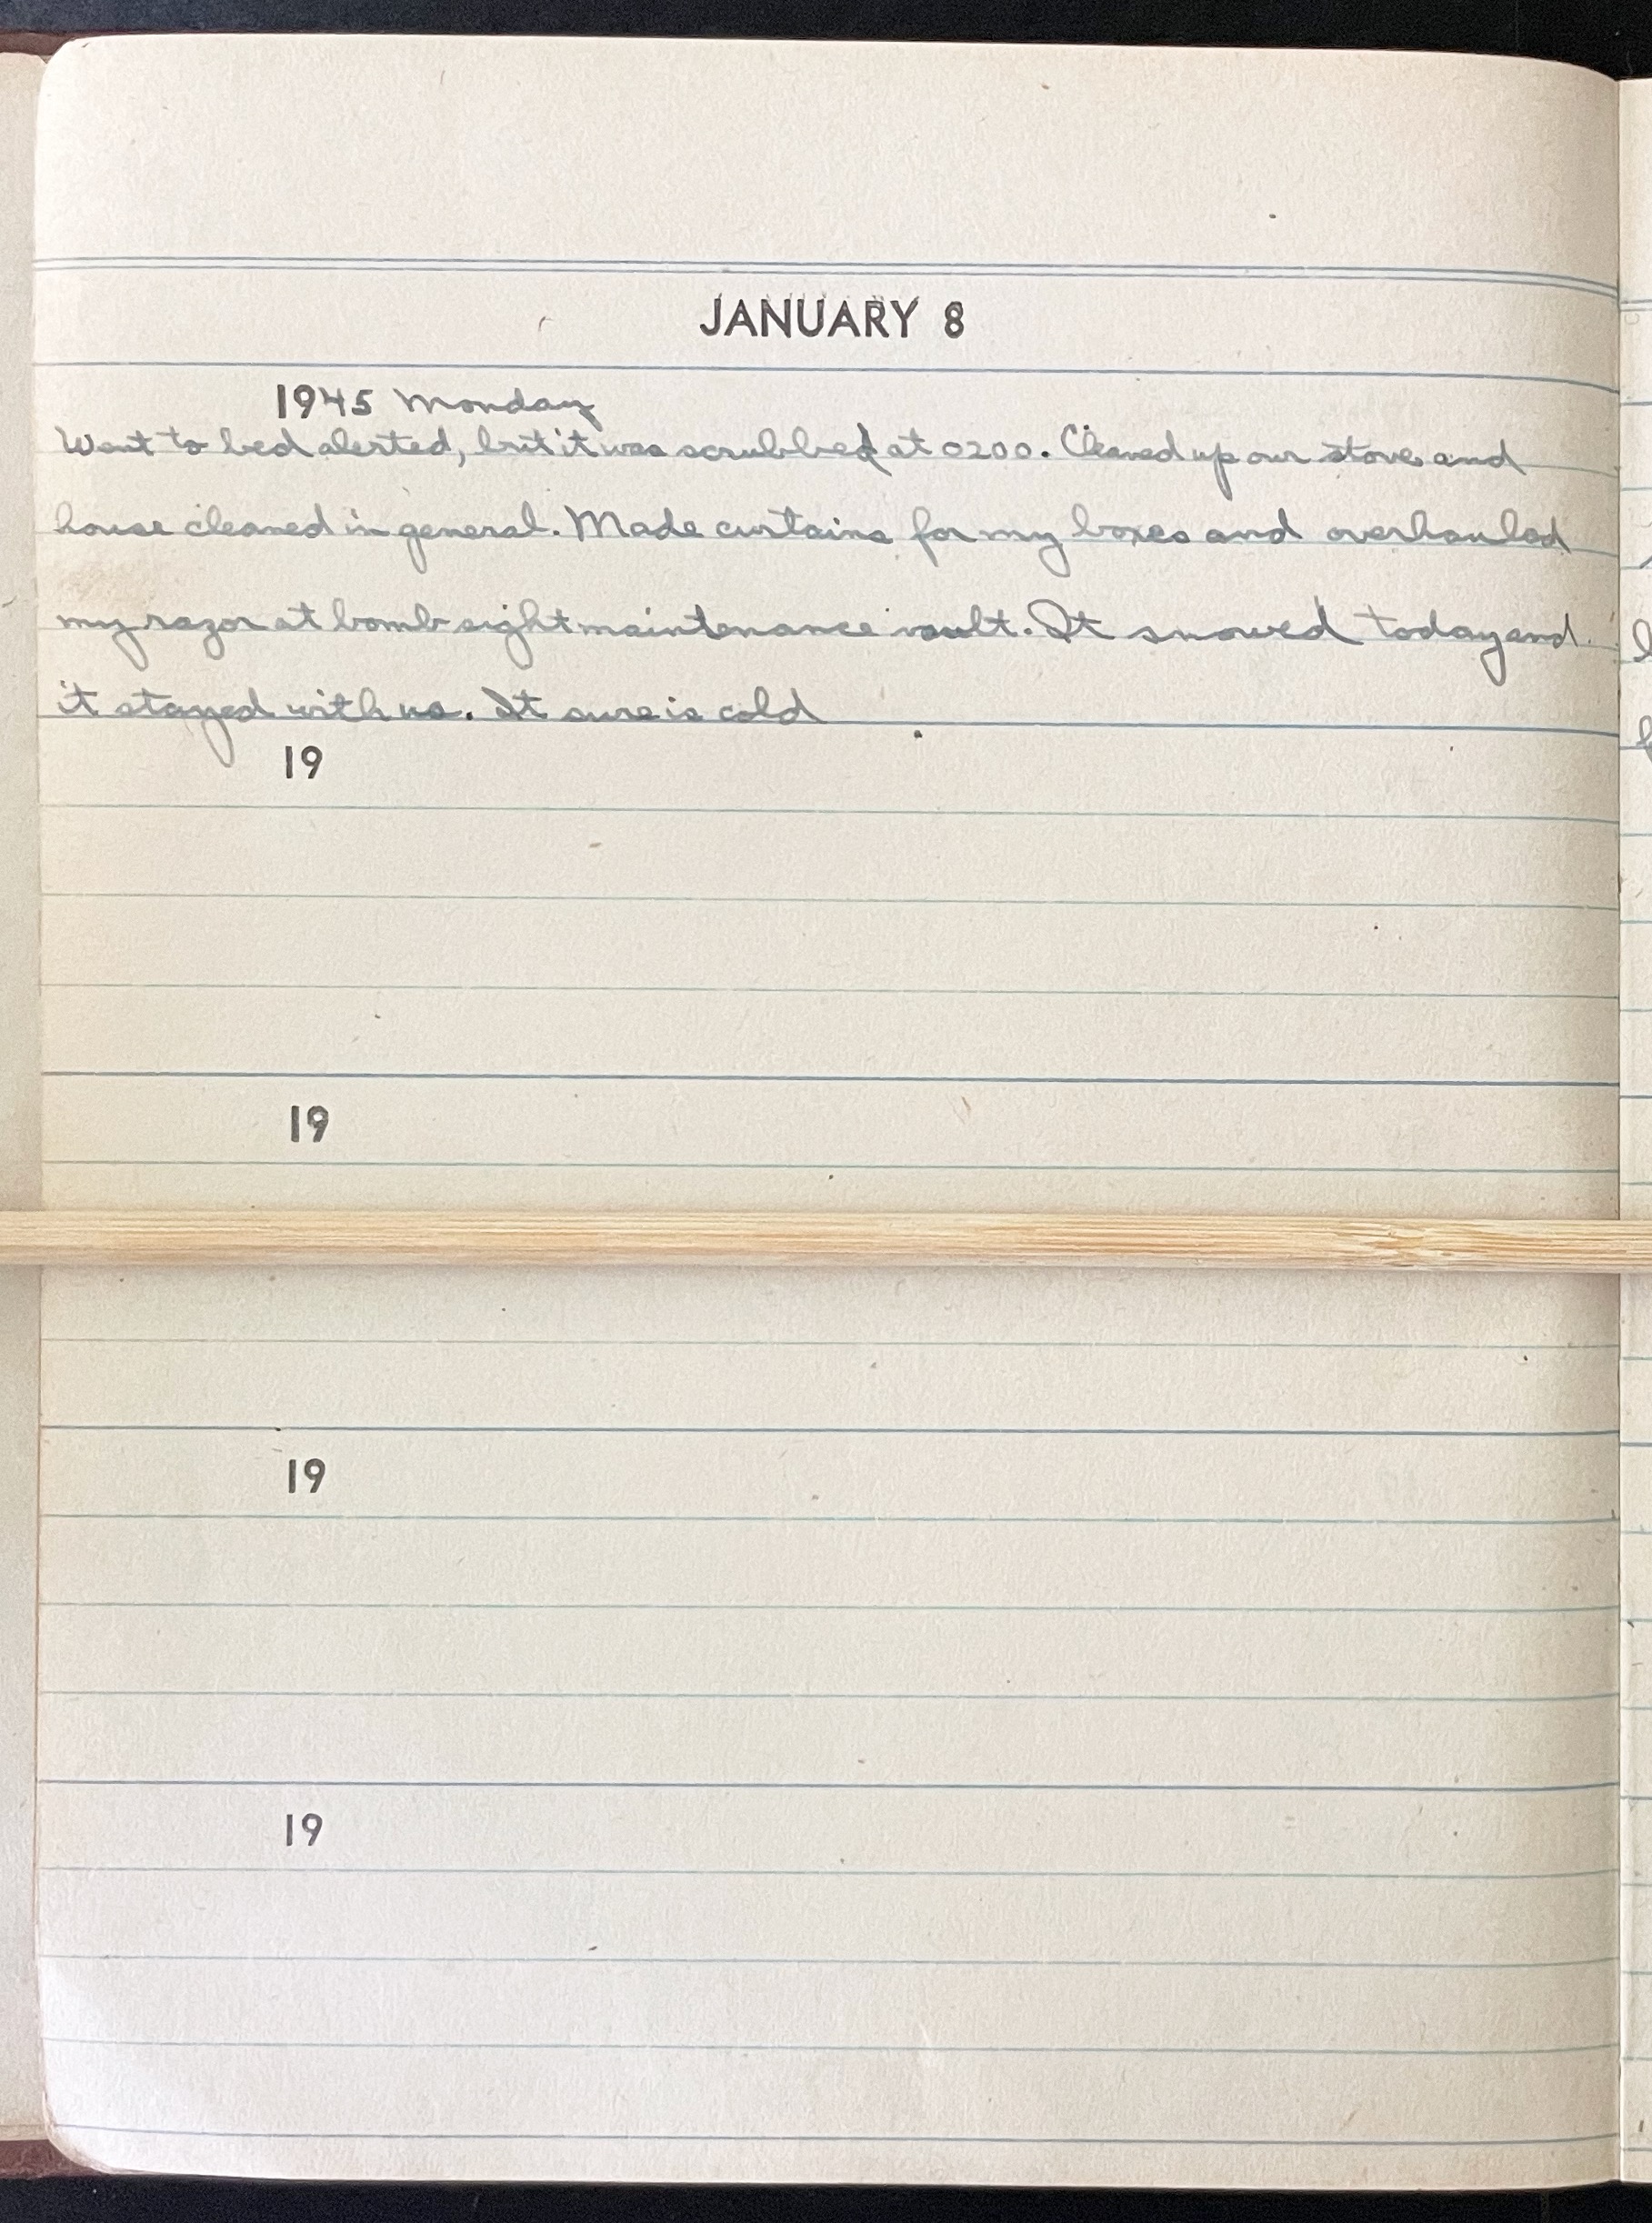 JANUARY 8
1945 Monday
Went to bed alerted, but it was scrubbed at 0200. Cleaned up our stove and
house cleaned in general. Made curtains for my boxes and overhauled
my razor at bomb sight maintenance vault. It snowed today and
it stayed with us. It sure is cold
19
19
19
19